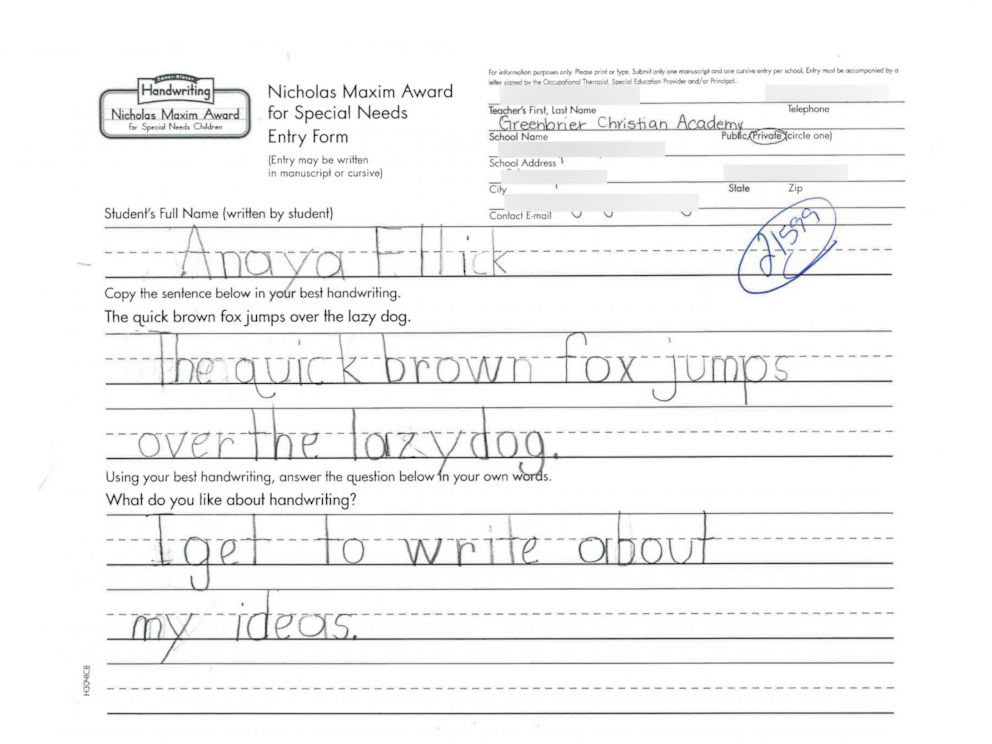 Zaner-Bloser
Handwriting
Nicholas Maxim Award
for Special Needs Children
Nicholas Maxim Award
for Special Needs
Entry Form
(Entry may be written
in manuscript or cursive)
For information purposes only. Please print or type. Submit only one manuscript and one cursive entry per school. Entry must be accompanied by a
letter signed by the Occupational Therapist, Special Education Provider and/or Principal.
Teacher's First, Last Name Telephone
Greenbrier Christian Academy
School Name Public/Private (circle one)
School Address
City State Zip
Contact E-mail
Student's Full Name (written by student)
Anaya Ellick
21599
Copy the sentence below in your best handwriting.
The quick brown fox jumps over the lazy dog.
The quick brown fox jumps
over the lazy dog.
Using your best handwriting, answer the question below in your own words.
What do you like about handwriting?
I get to write about
my ideas.